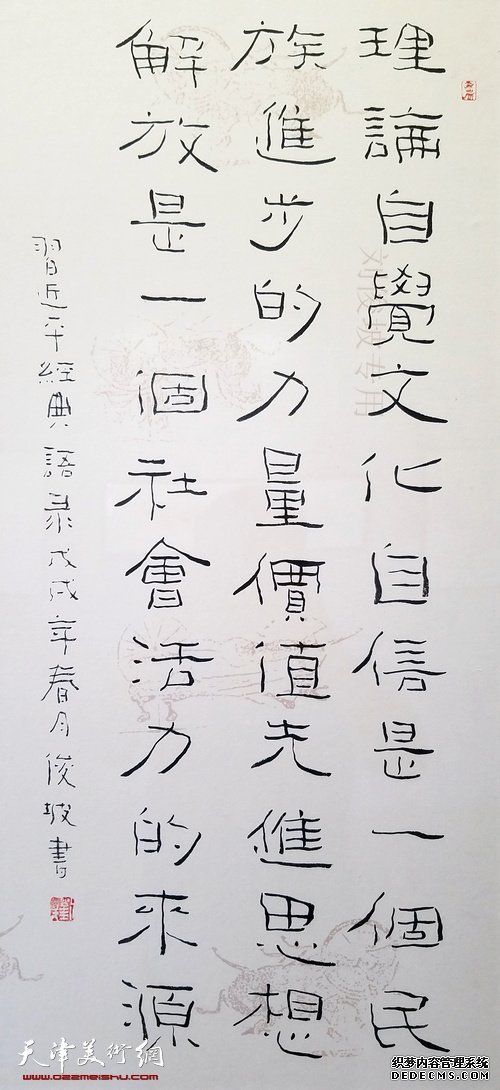 理論自覺文化自信是一個民
族進步的力量價值先進思想
解放是一個社會活力的來源
習近平經典語录戊戌年春月俊坡書
刘俊坡专用
天津美術網
www.022meishu.com
织梦内容管理系统
DEDECMS.COM